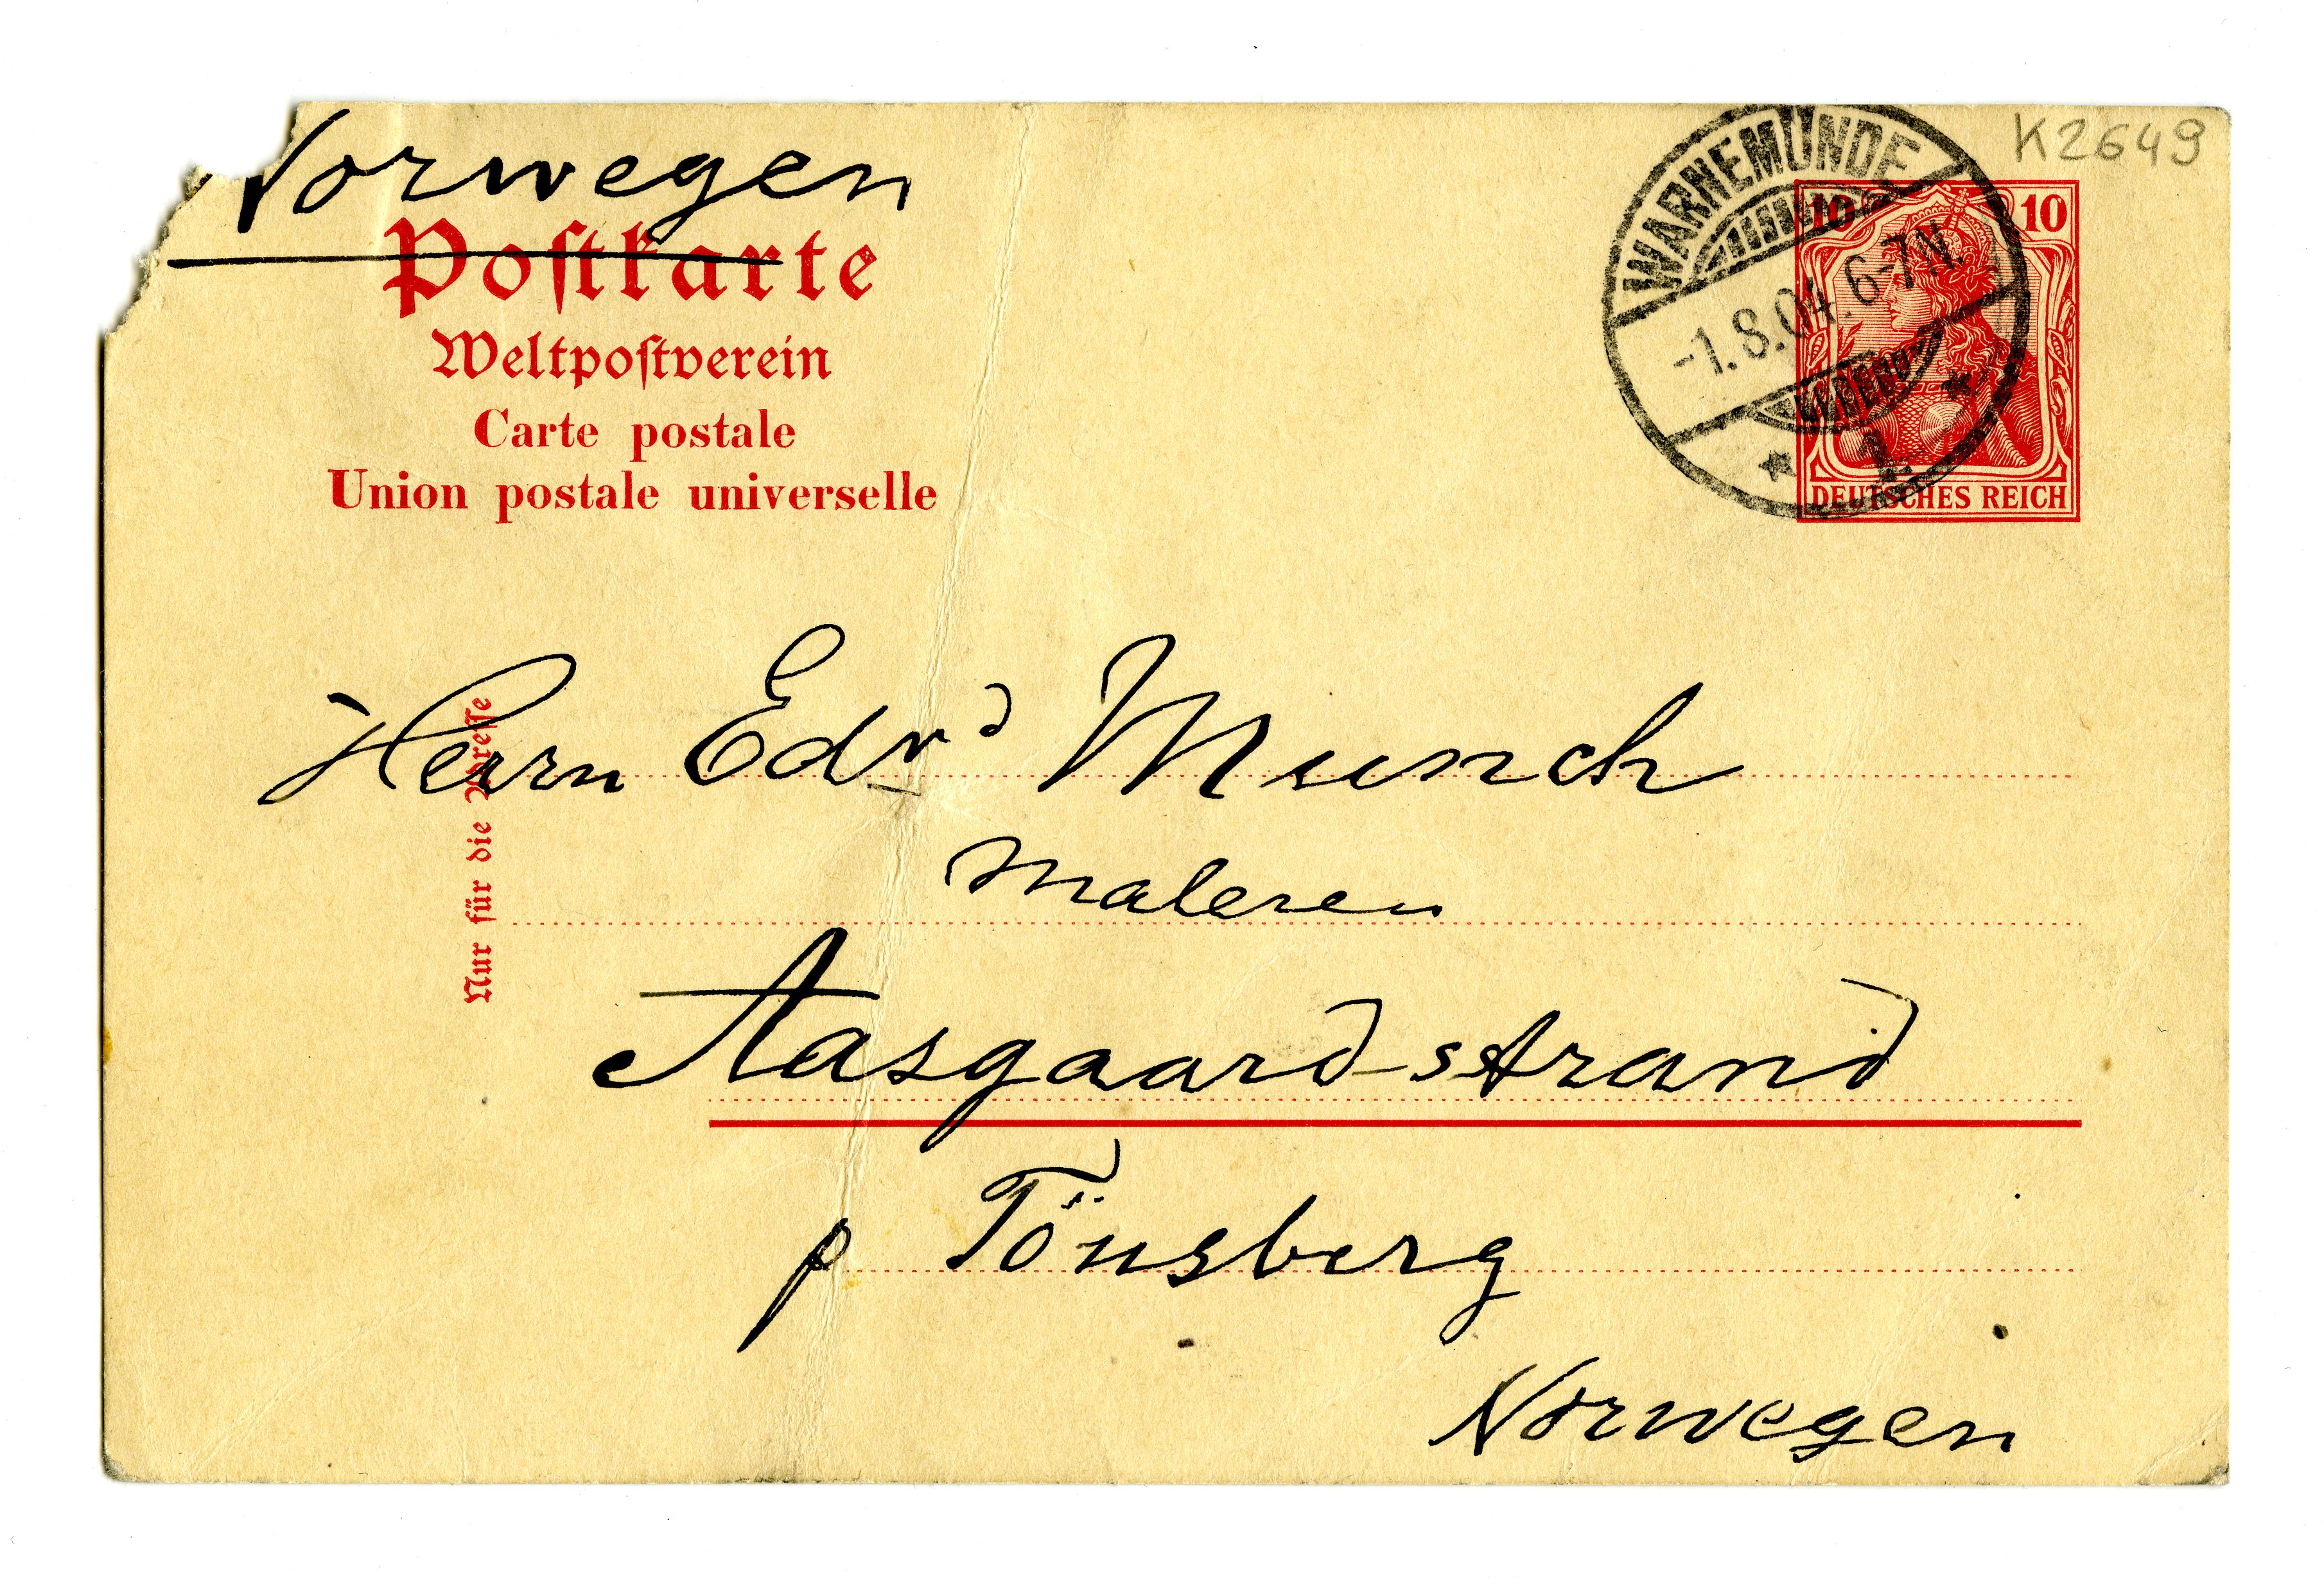 Norwegen
Postkarte
Weltpostverein
Carte postale
Union postale universelle
K2649
WARNEMÜNDE
-1.8.04.6-7N.
1.
10 10
DEUTSCHES REICH
Nur für die Adresse
Herrn Edvd Munch
maleren
Aasgaardsstrand
p Tönsberg
Norwegen